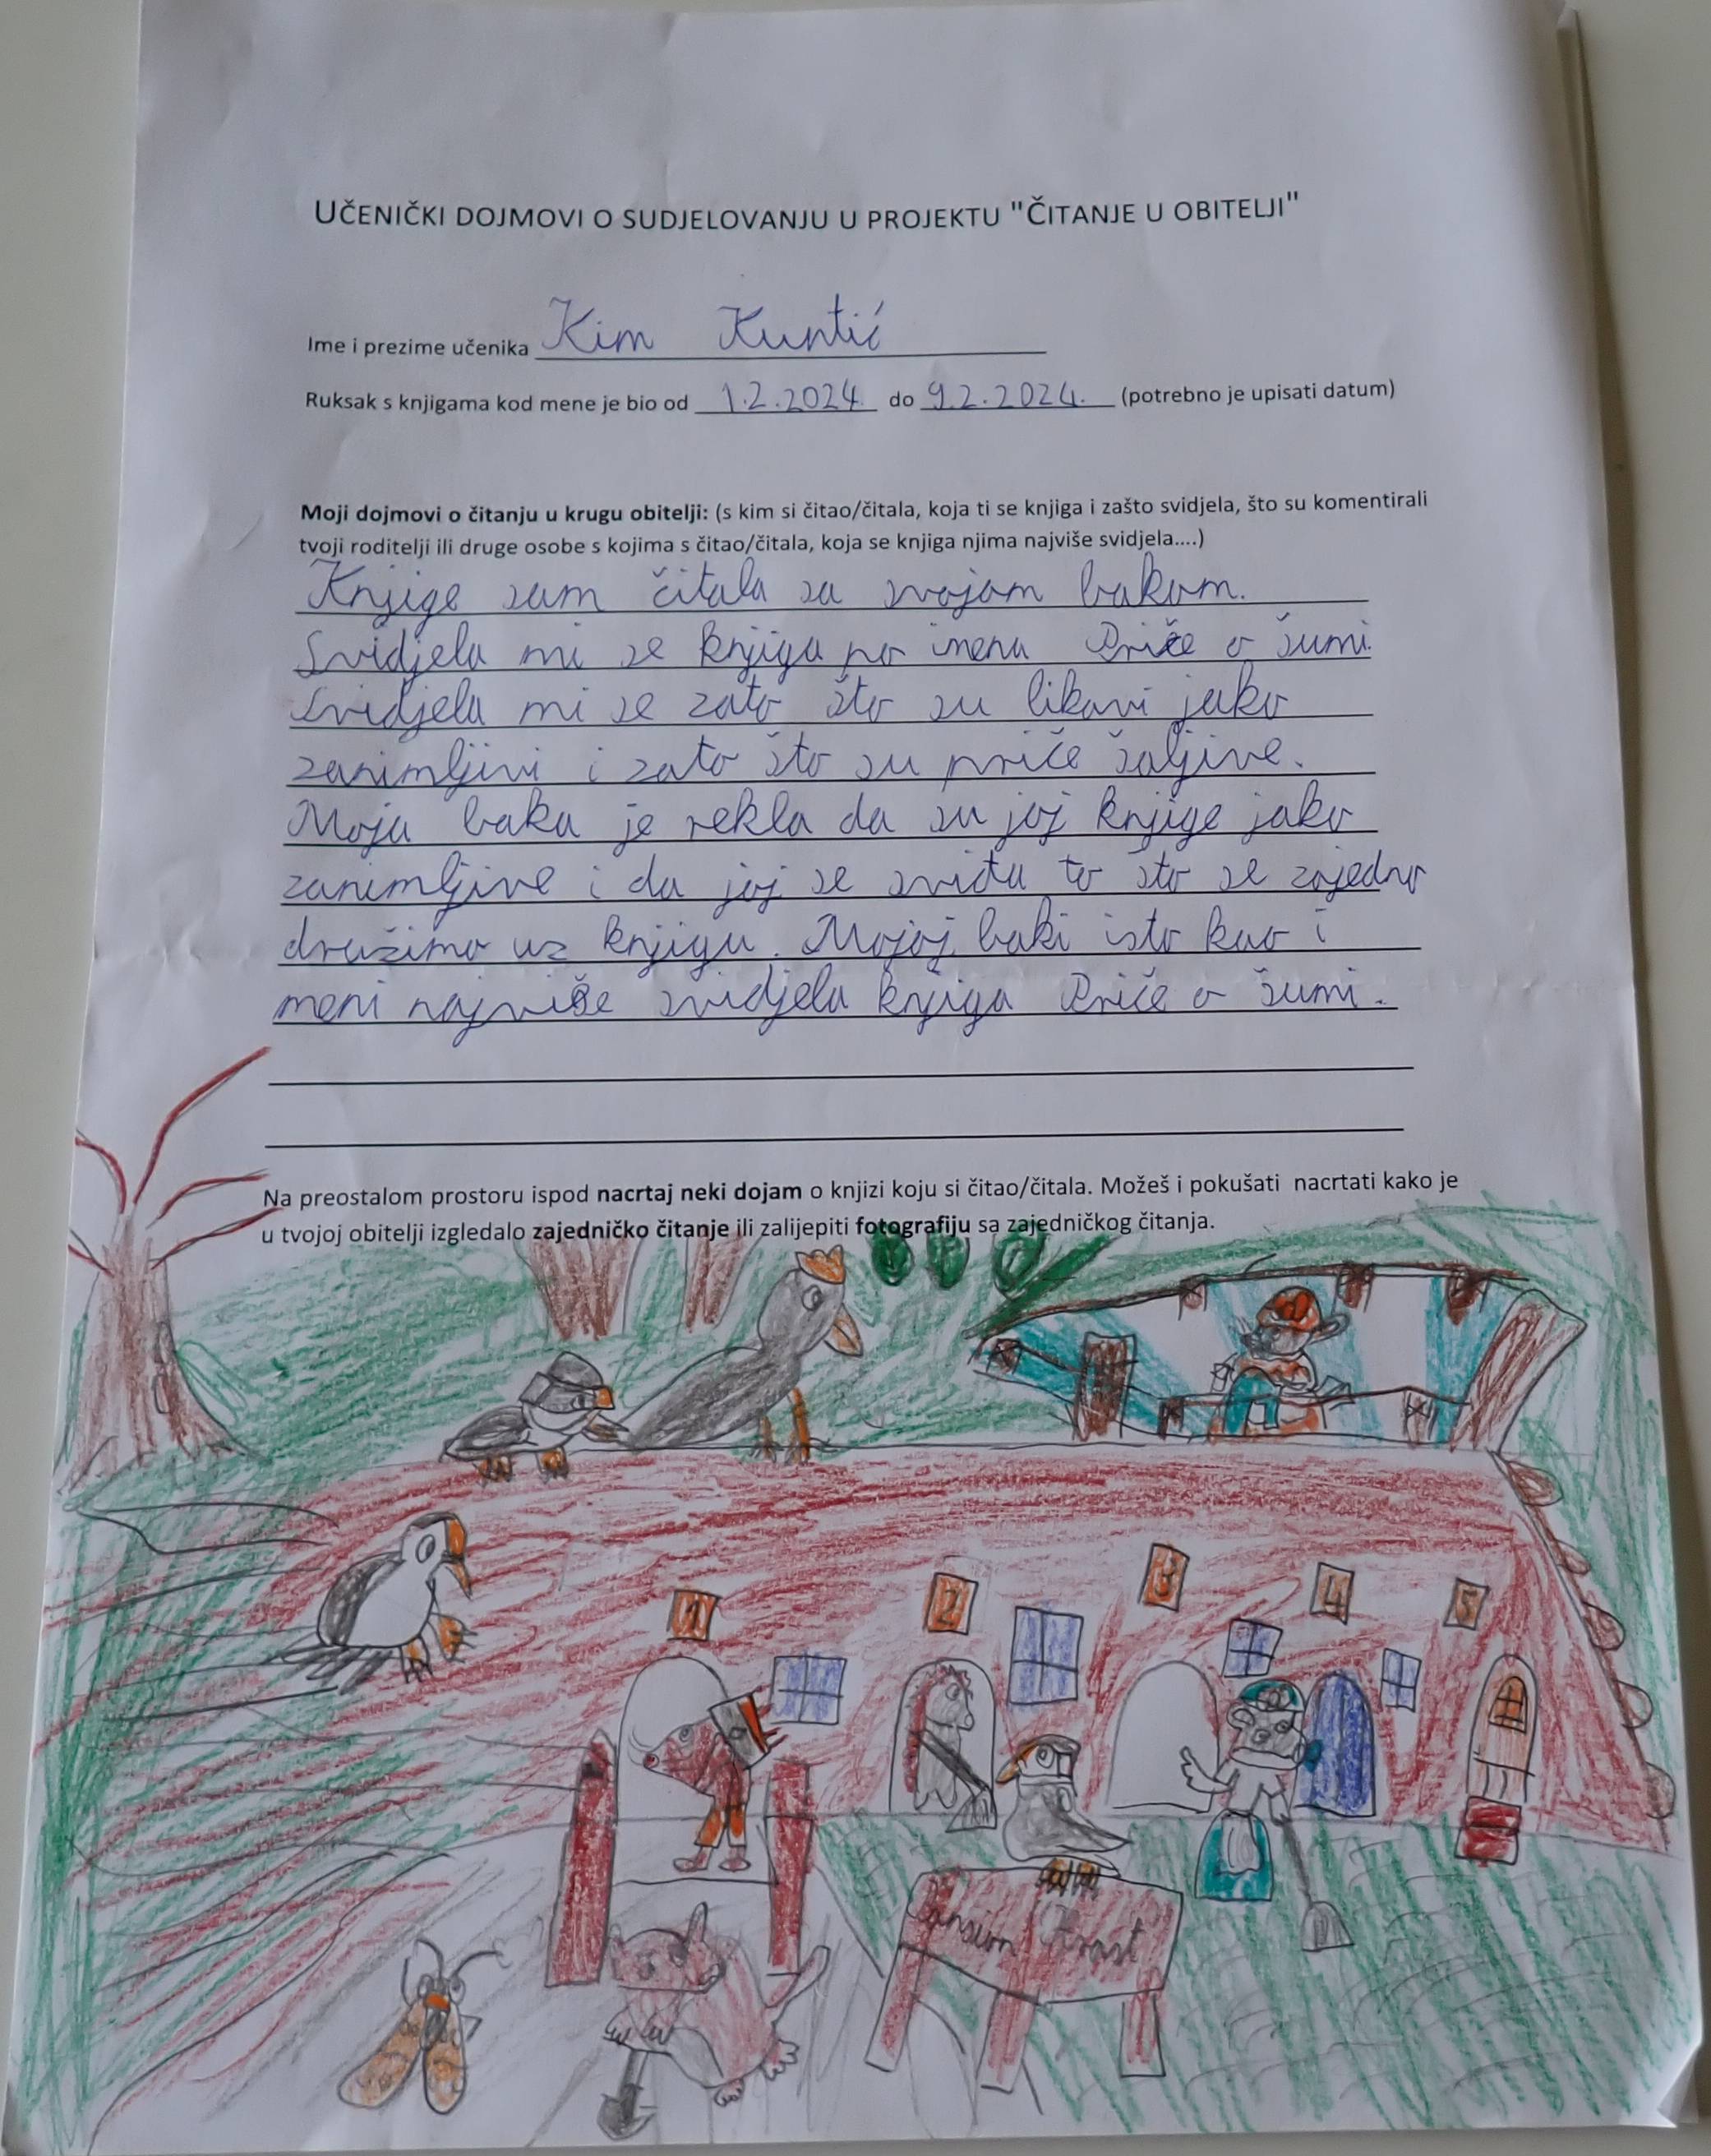 UČENIČKI DOJMOVI O SUDJELOVANJU U PROJEKTU "ČITANJE U OBITELJI"
Ime i prezime učenika Kim Kuntić
Ruksak s knjigama kod mene je bio od 1.2.2024. do 9.2.2024. (potrebno je upisati datum)
Moji dojmovi o čitanju u krugu obitelji: (s kim si čitao/čitala, koja ti se knjiga i zašto svidjela, što su komentirali
tvoji roditelji ili druge osobe s kojima s čitao/čitala, koja se knjiga njima najviše svidjela....)
Knjige sam čitala sa svojom bakom.
Svidjela mi se knjiga po imenu Priče o šumi.
Svidjela mi se zato što su likovi jako
zanimljivi i zato što su priče šaljive.
Moja baka je rekla da su joj knjige jako
zanimljive i da joj se sviđa to što se zajedno
družimo uz knjigu. Mojoj baki isto kao i
meni najviše svidjela knjiga Priče o šumi.
Na preostalom prostoru ispod nacrtaj neki dojam o knjizi koju si čitao/čitala. Možeš i pokušati nacrtati kako je
u tvojoj obitelji izgledalo zajedničko čitanje ili zalijepiti fotografiju sa zajedničkog čitanja.
1 2 3 4 5
Pansion Hrast